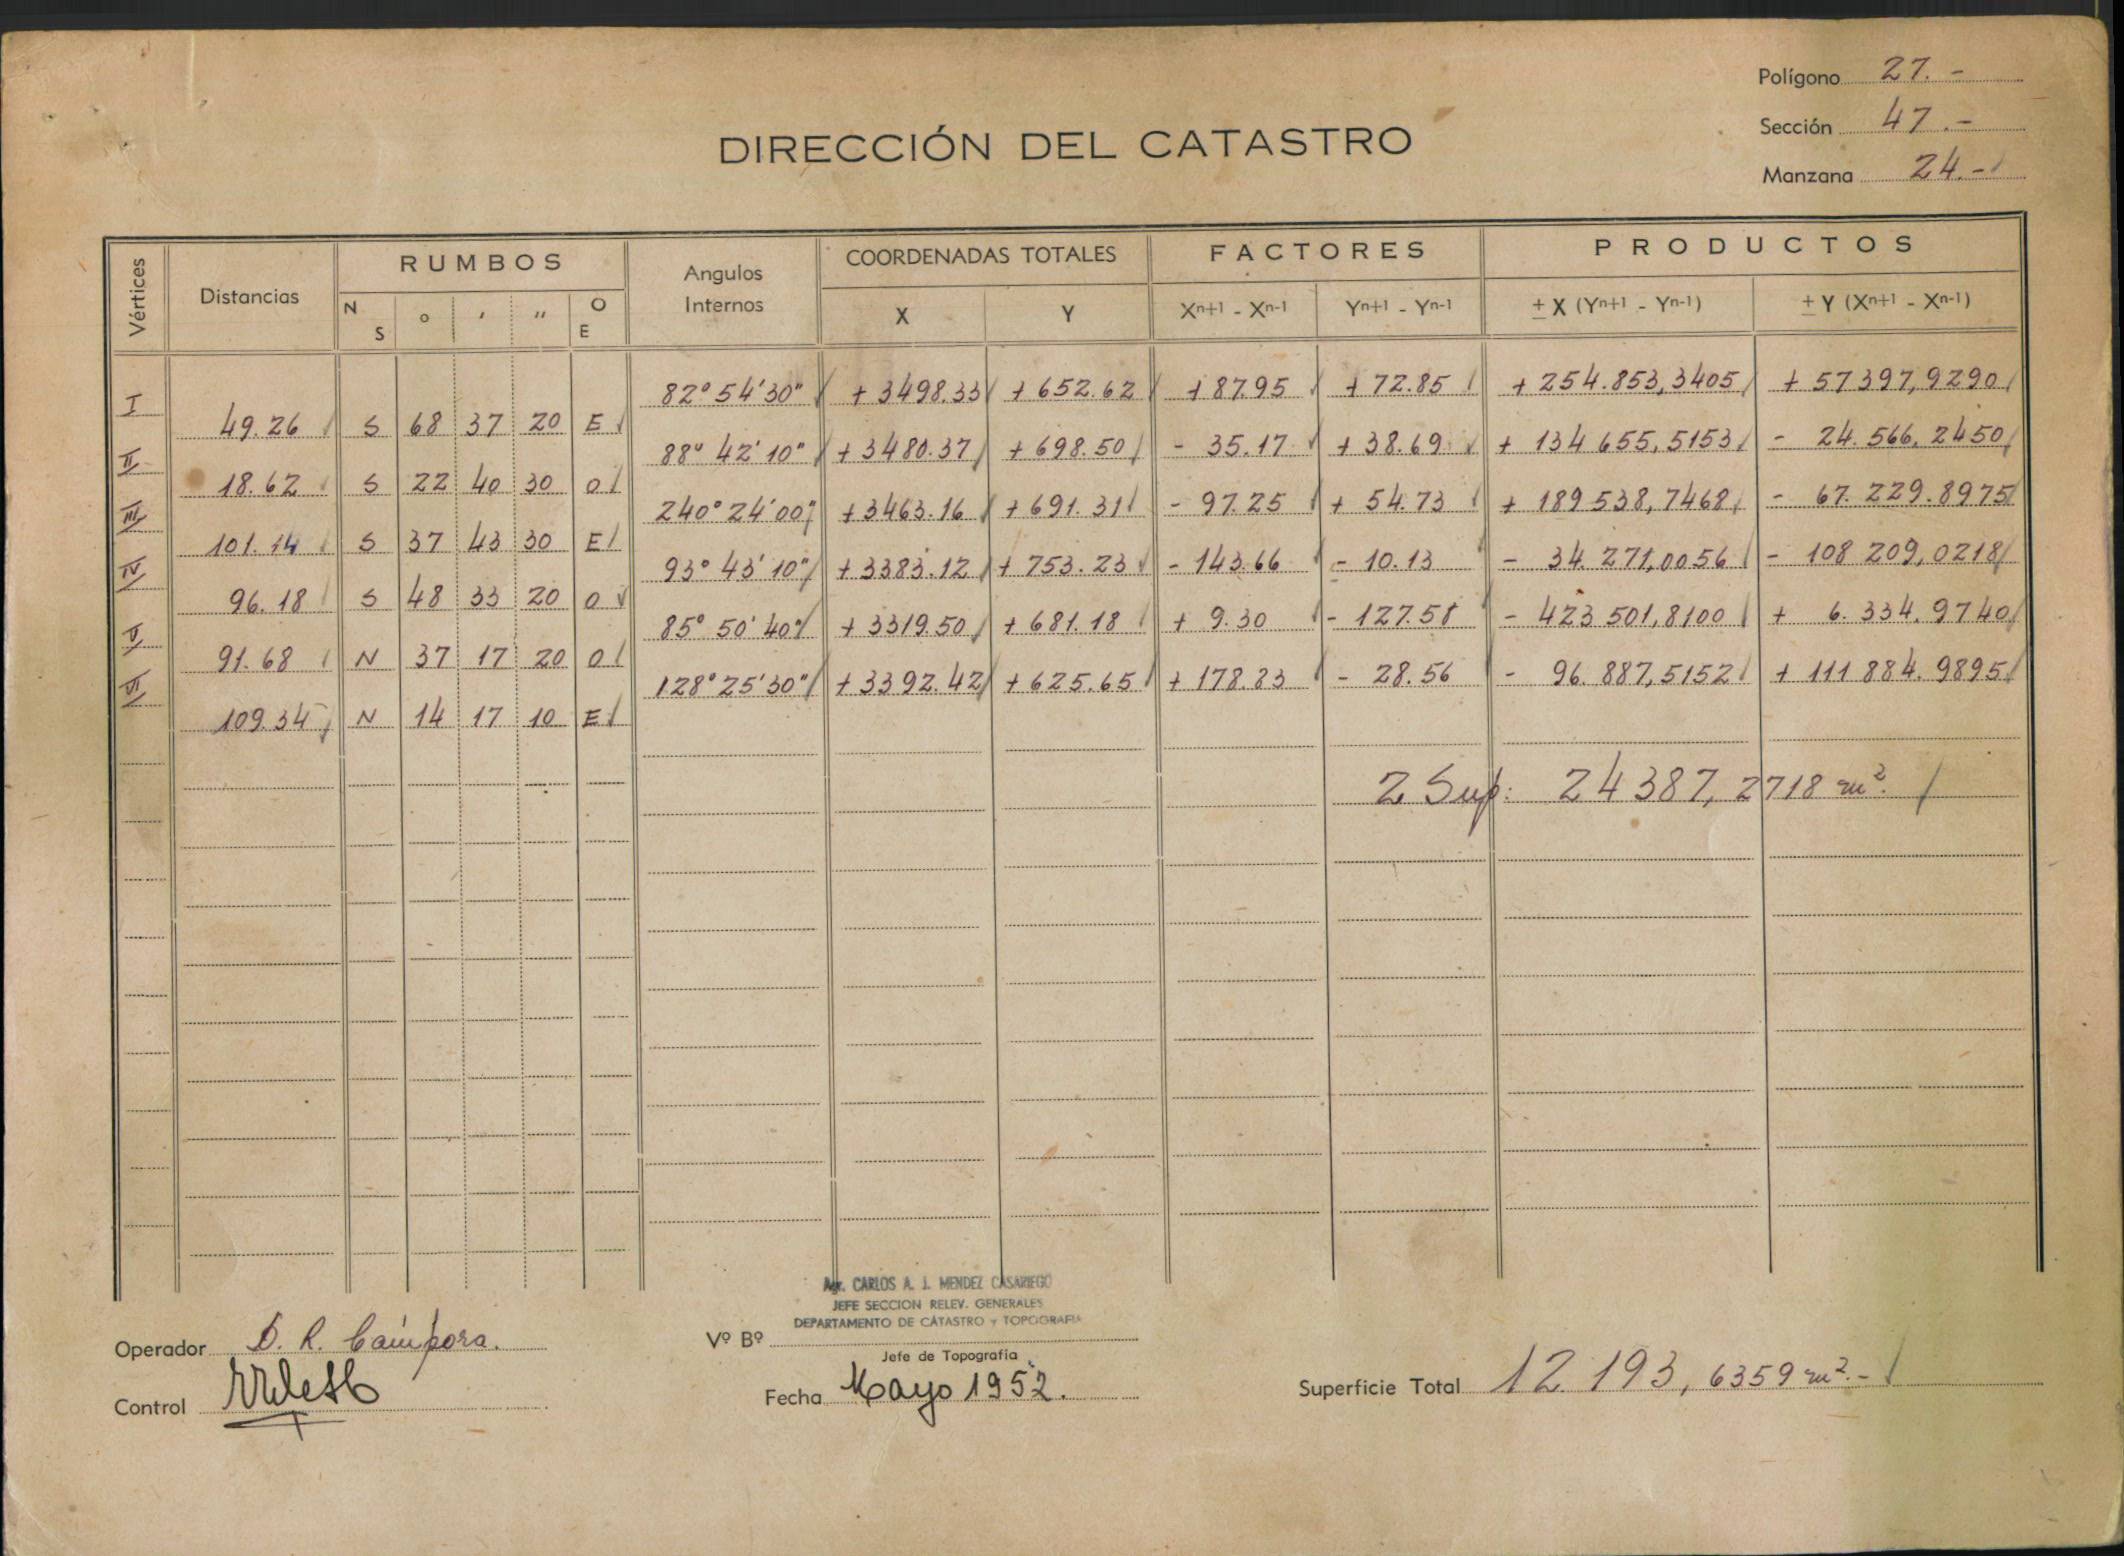 Polígono 27.-
Sección 47.-
Manzana 24.-
DIRECCIÓN DEL CATASTRO
Vértices Distancias RUMBOS Angulos Internos COORDENADAS TOTALES FACTORES PRODUCTOS
N S ° ' " O E X Y Xn+1 - Xn-1 Yn+1 - Yn-1 ± X (Yn+1 - Yn-1) ± Y (Xn+1 - Xn-1)
I 82° 54' 30" + 3498.33 + 652.62 + 87.95 + 72.85 + 254.853,3405 + 57397,9290
49.26 S 68 37 20 E
II 88° 42' 10" + 3480.37 + 698.50 - 35.17 + 38.69 + 134 655,5153 - 24.566,2450
18.62 S 22 40 30 O
III 240° 24' 00" + 3463.16 + 691.31 - 97.25 + 54.73 + 189 538,7468 - 67.229.8975
101.14 S 37 43 30 E
IV 93° 43' 10" + 3383.12 + 753.23 - 143.66 - 10.13 - 34.271,0056 - 108 209,0218
96.18 S 48 33 20 O
V 85° 50' 40" + 3319.50 + 681.18 + 9.30 - 127.58 - 423 501,8100 + 6.334.9740
91.68 N 37 17 20 O
VI 128° 25' 30" + 3392.42 + 625.65 + 178.83 - 28.56 - 96.887,5152 + 111 884.9895
109.34 N 14 17 10 E
2 Sup: 24387,2718 m².
Agr. CARLOS A. J. MENDEZ CASARIEGO
JEFE SECCION RELEV. GENERALES
DEPARTAMENTO DE CATASTRO Y TOPOGRAFIA
Operador D. R. Cámpora.
Vº Bº
Jefe de Topografía
Control
Fecha Mayo 1952.
Superficie Total 12.193,6359 m².-